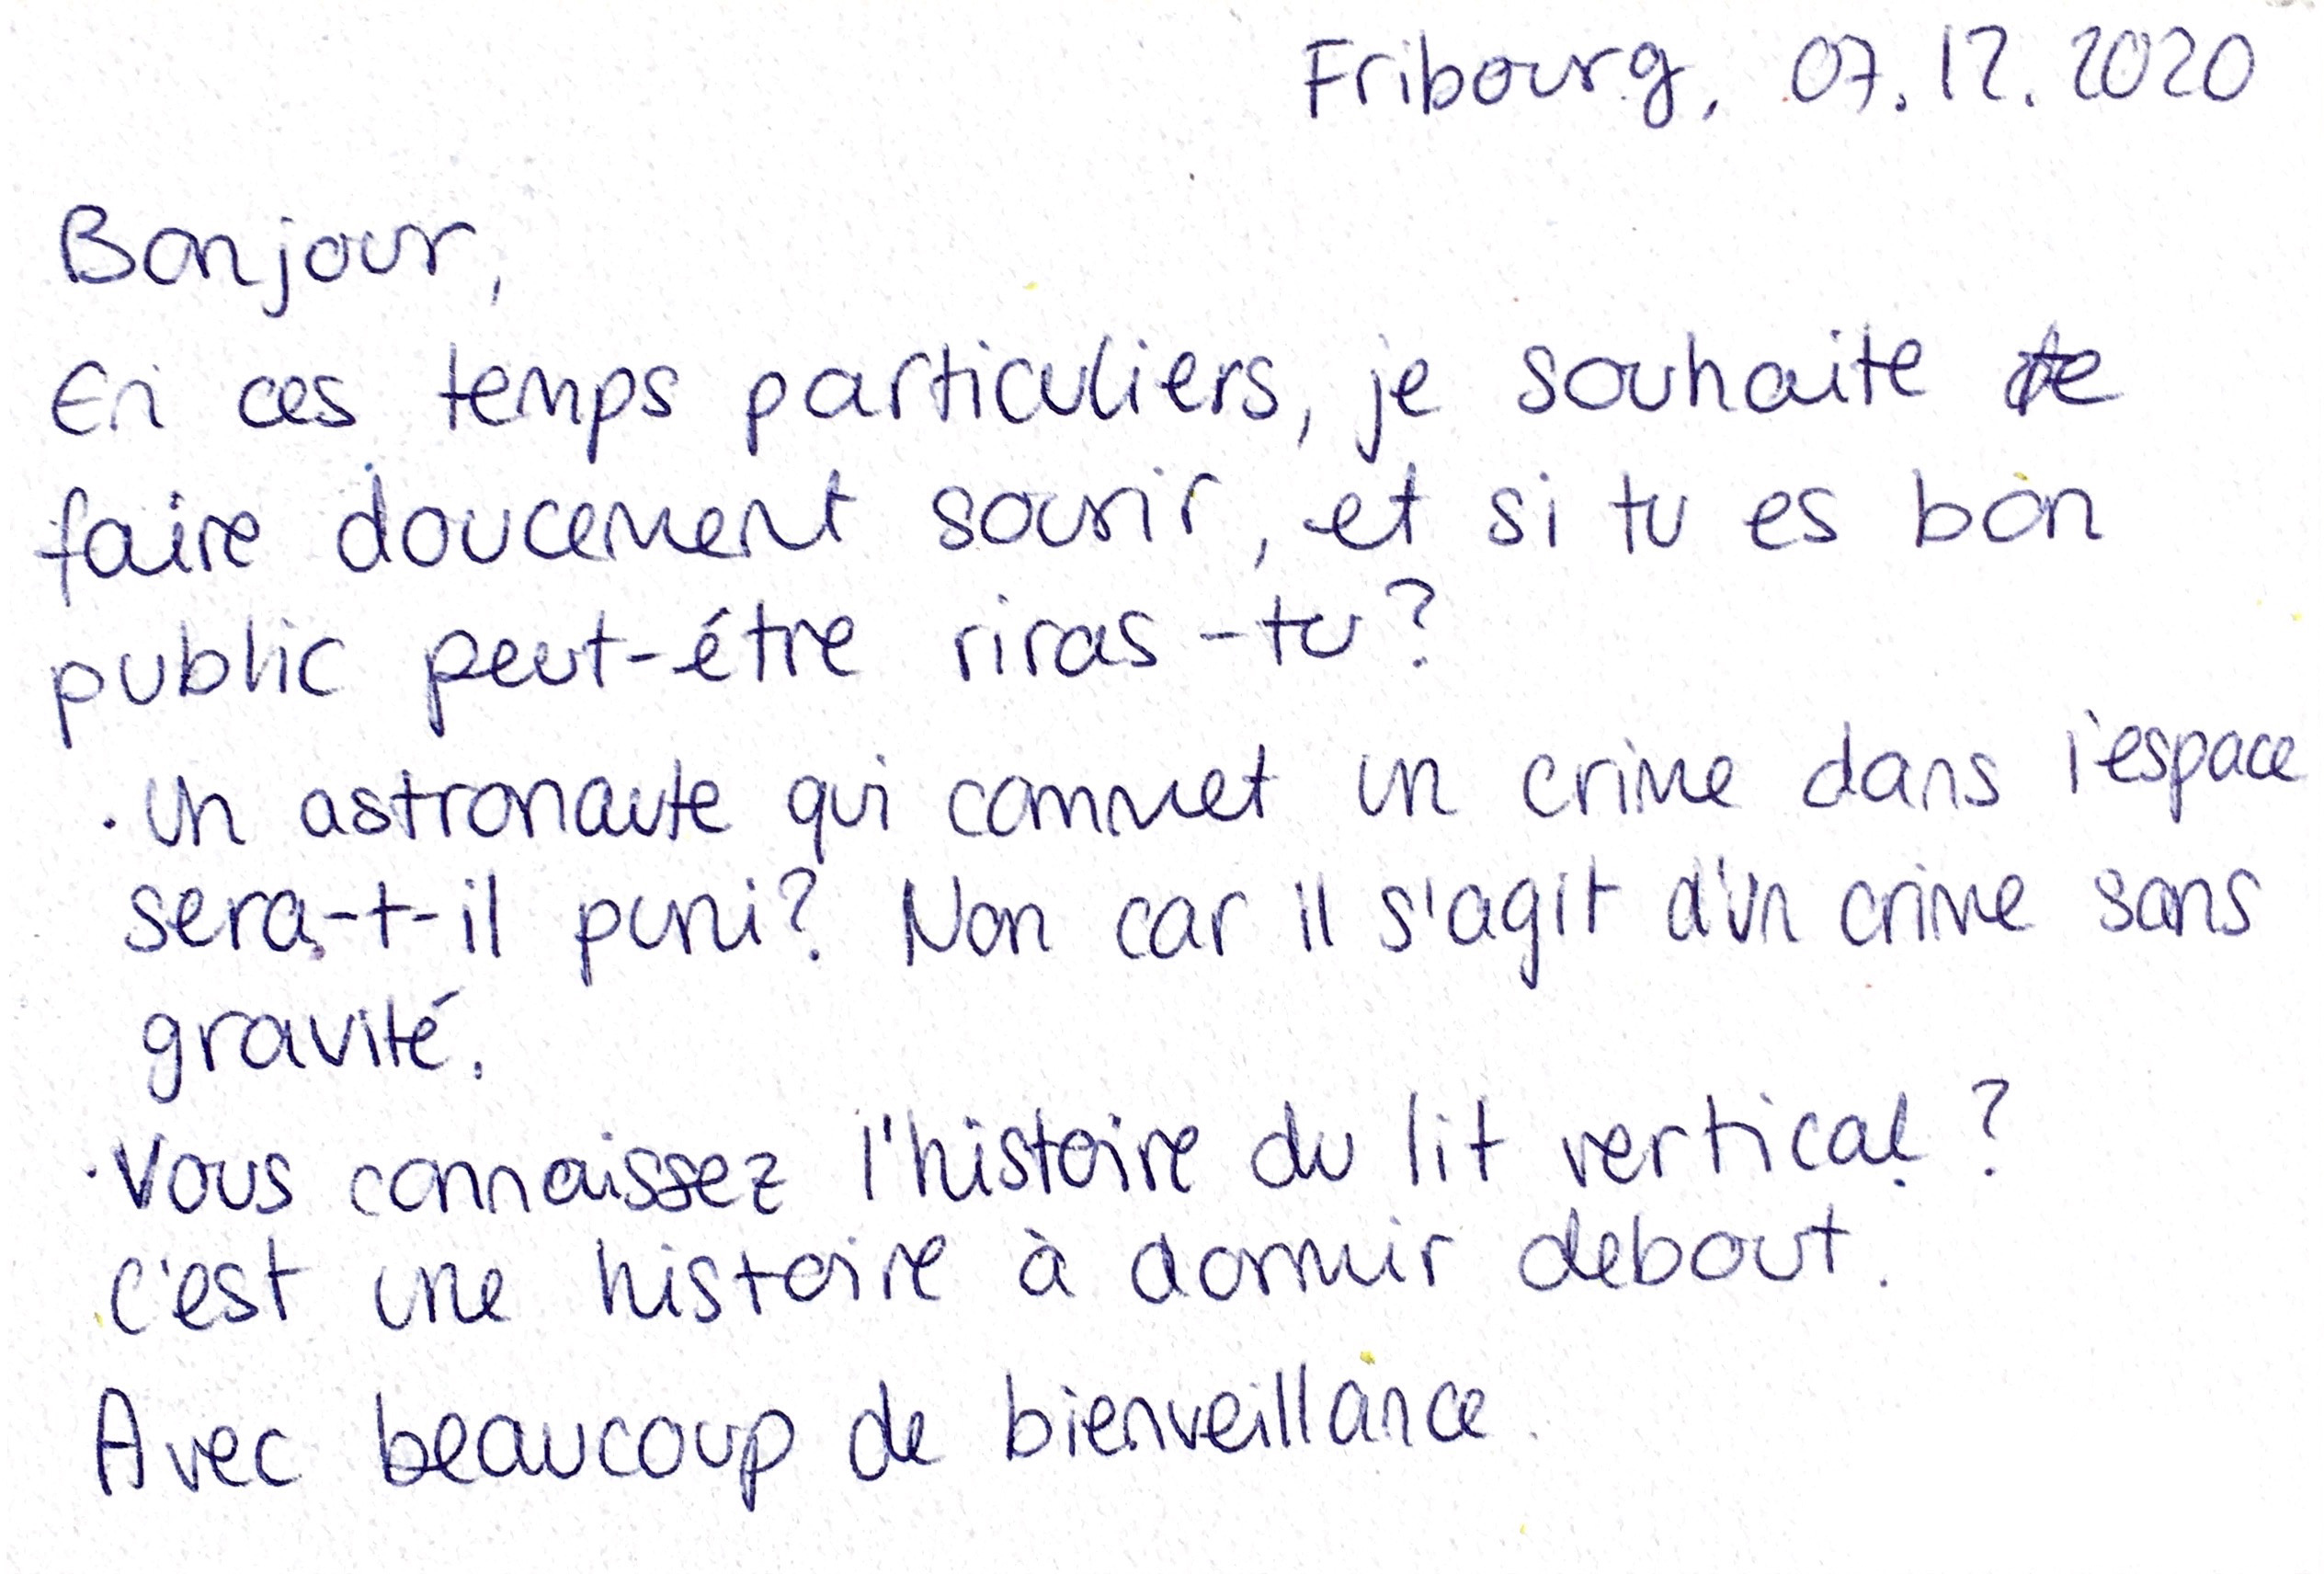 Fribourg, 07.12.2020
Bonjour,
En ces temps particuliers, je souhaite te
faire doucement sourir, et si tu es bon
public peut-être riras-tu?
· Un astronaute qui commet un crime dans l'espace
sera-t-il puni? Non car il s'agit d'un crime sans
gravité.
· Vous connaissez l'histoire du lit vertical?
c'est une histoire à dormir debout.
Avec beaucoup de bienveillance.